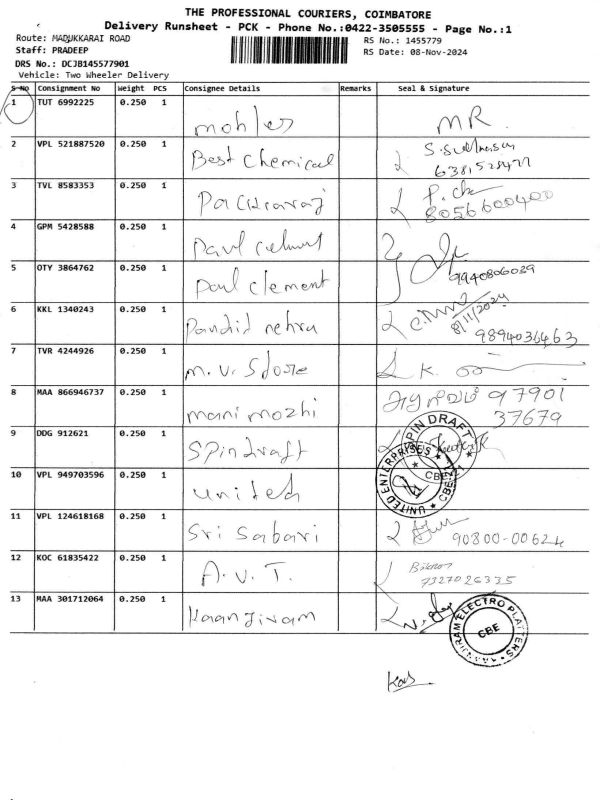 THE PROFESSIONAL COURIERS, COIMBATORE
Delivery Runsheet - PCK - Phone No.:0422-3505555 - Page No.:1
Route: MADUKKARAI ROAD
RS No.: 1455779
Staff: PRADEEP
RS Date: 08-Nov-2024
DRS No.: DCJB145577901
Vehicle: Two Wheeler Delivery
S No Consignment No Weight PCS Consignee Details Remarks Seal & Signature
1 TUT 6992225 0.250 1 mohler MR.
2 VPL 521887520 0.250 1 Best Chemical
6381528477
3 TVL 8583353 0.250 1
8056600400
4 GPM 5428588 0.250 1 Paul
5 OTY 3864762 0.250 1 Paul clement 9940806039
6 KKL 1340243 0.250 1 Pandid nehru 8/11/2024
9894036463
7 TVR 4244926 0.250 1 m. v. Store K.
8 MAA 866946737 0.250 1 manimozhi 97901
37679
9 DDG 912621 0.250 1 Spindraft SPIN DRAFT
10 VPL 949703596 0.250 1 united UNITED ENTERPRISES CBE-21
11 VPL 124618168 0.250 1 Sri Sabari 90800-00624
12 KOC 61835422 0.250 1 A.V.T.
7327026335
13 MAA 301712064 0.250 1 ELECTRO PLATTERS CBE